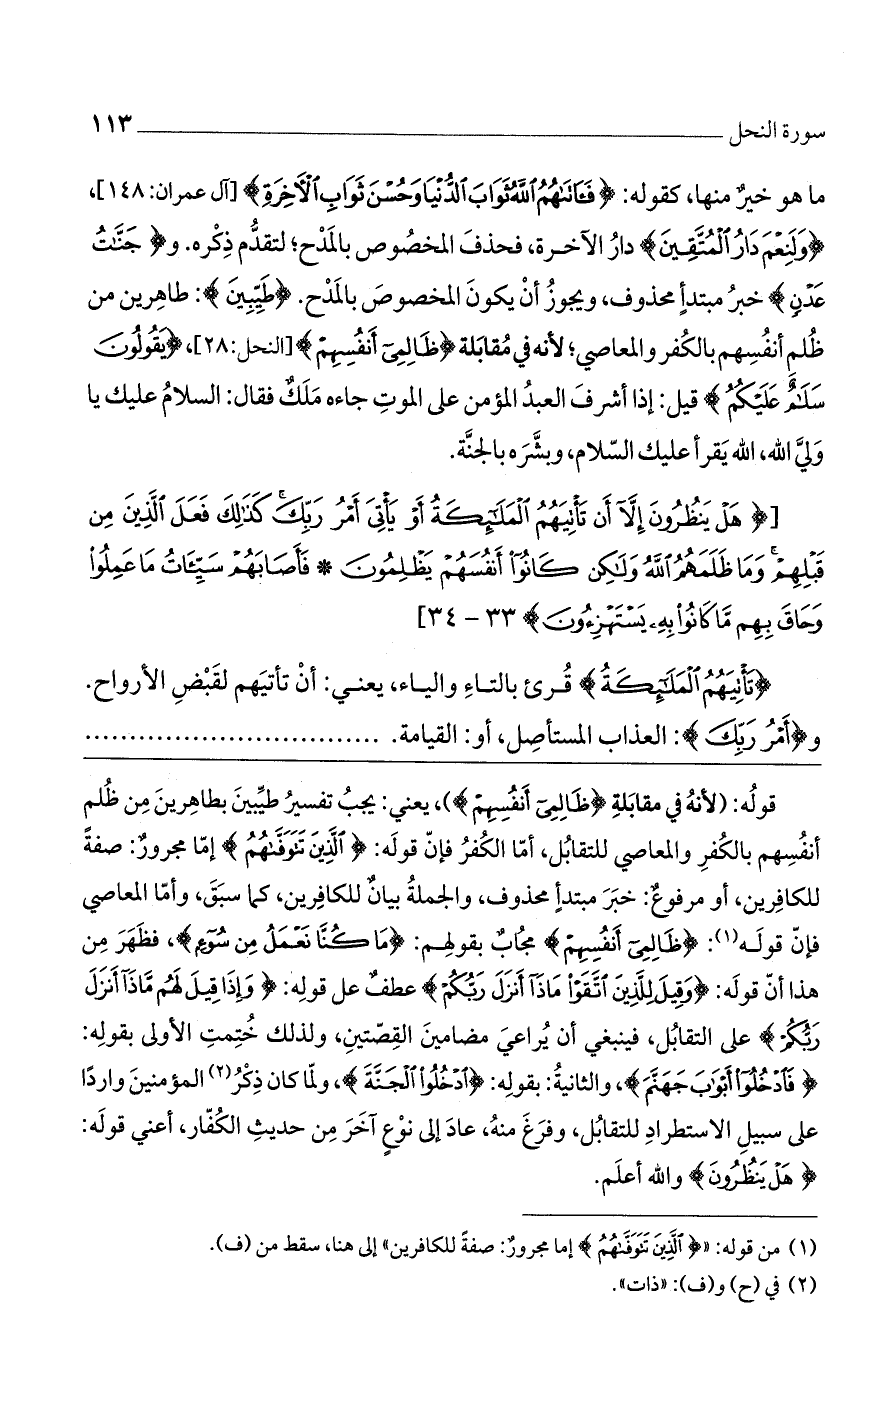 سورة النحل ١١٣
ما هو خيرٌ منها، كقوله: ﴿فَـَٔاتَىٰهُمُ ٱللَّهُ ثَوَابَ ٱلدُّنْيَا وَحُسْنَ ثَوَابِ ٱلْأَخِرَةِ﴾ [آل عمران: ١٤٨]،
﴿وَلَنِعْمَ دَارُ ٱلْمُتَّقِينَ﴾ دارُ الآخرة، فحذفَ المخصُوص بالمَدْح؛ لتقدُّم ذِكْره. و﴿جَنَّـٰتُ
عَدْنٍ﴾ خبرُ مبتدأٍ محذوف، ويجوزُ أنْ يكونَ المخصوصَ بالمَدْح. ﴿طَيِّبِينَ﴾: طاهِرين من
ظُلمِ أنفُسِهم بالكُفر والمعاصي؛ لأنه في مُقابَلة ﴿ظَالِمِىٓ أَنفُسِهِمْ﴾ [النحل: ٢٨]، ﴿يَقُولُونَ
سَلَـٰمٌ عَلَيْكُمُ﴾ قيل: إذا أشرفَ العبدُ المؤمن على الموتِ جاءه مَلَكٌ فقال: السلامُ عليك يا
وَليَّ الله، الله يَقرأ عليك السّلام، وبشَّرَه بالجنَّة.
[﴿هَلْ يَنظُرُونَ إِلَّآ أَن تَأْتِيَهُمُ ٱلْمَلَـٰٓئِكَةُ أَوْ يَأْتِىَ أَمْرُ رَبِّكَ ۚ كَذَٰلِكَ فَعَلَ ٱلَّذِينَ مِن
قَبْلِهِمْ ۚ وَمَا ظَلَمَهُمُ ٱللَّهُ وَلَـٰكِن كَانُوٓا۟ أَنفُسَهُمْ يَظْلِمُونَ * فَأَصَابَهُمْ سَيِّـَٔاتُ مَا عَمِلُوا۟
وَحَاقَ بِهِم مَّا كَانُوا۟ بِهِۦ يَسْتَهْزِءُونَ﴾ ٣٣ - ٣٤]
﴿تَأْتِيَهُمُ ٱلْمَلَـٰٓئِكَةُ﴾ قُرئ بالتاءِ والياء، يعني: أنْ تأتيَهم لقَبْضِ الأرواح.
و﴿أَمْرُ رَبِّكَ﴾: العذاب المستأصِل، أو: القيامة. ................................
قولُه: (لأنهُ في مقابلةِ ﴿ظَالِمِىٓ أَنفُسِهِمْ﴾)، يعني: يجبُ تفسيرُ طيِّبينَ بطاهِرينَ مِن ظُلم
أنفُسِهم بالكُفرِ والمعاصي للتقابُل، أمّا الكُفرُ فإنّ قولَه: ﴿ٱلَّذِينَ تَتَوَفَّىٰهُمُ﴾ إمّا مجرورٌ: صفةً
للكافِرين، أو مرفوعٌ: خبَرَ مبتدأٍ محذوف، والجملةُ بيانٌ للكافِرين، كما سبَقَ، وأمّا المعاصي
فإنّ قولَه(١): ﴿ظَالِمِىٓ أَنفُسِهِمْ﴾ مجُابٌ بقولهم: ﴿مَا كُنَّا نَعْمَلُ مِن سُوٓءٍ﴾، فظَهَرَ مِن
هذا أنّ قولَه: ﴿وَقِيلَ لِلَّذِينَ ٱتَّقَوْا۟ مَاذَآ أَنزَلَ رَبُّكُمْ﴾ عطفٌ عل قولِه: ﴿وَإِذَا قِيلَ لَهُم مَّاذَآ أَنزَلَ
رَبُّكُمْ﴾ على التقابُل، فينبغي أن يُراعيَ مضامينَ القِصّتينِ، ولذلك خُتِمتِ الأولى بقولِه:
﴿فَٱدْخُلُوٓا۟ أَبْوَٰبَ جَهَنَّمَ﴾، والثانيةُ: بقولِه: ﴿ٱدْخُلُوا۟ ٱلْجَنَّةَ﴾، ولمّا كان ذِكْرُ(٢) المؤمنينَ واردًا
على سبيلِ الاستطرادِ للتقابُل، وفرَغَ منهُ، عادَ إلى نوْعٍ آخَرَ مِن حديثِ الكُفّار، أعني قولَه:
﴿هَلْ يَنظُرُونَ﴾ والله أعلَم.
(١) من قوله: «﴿ٱلَّذِينَ تَتَوَفَّىٰهُمُ﴾ إما مجرورٌ: صفةً للكافرين» إلى هنا، سقط من (ف).
(٢) في (ح) و(ف): «ذات».